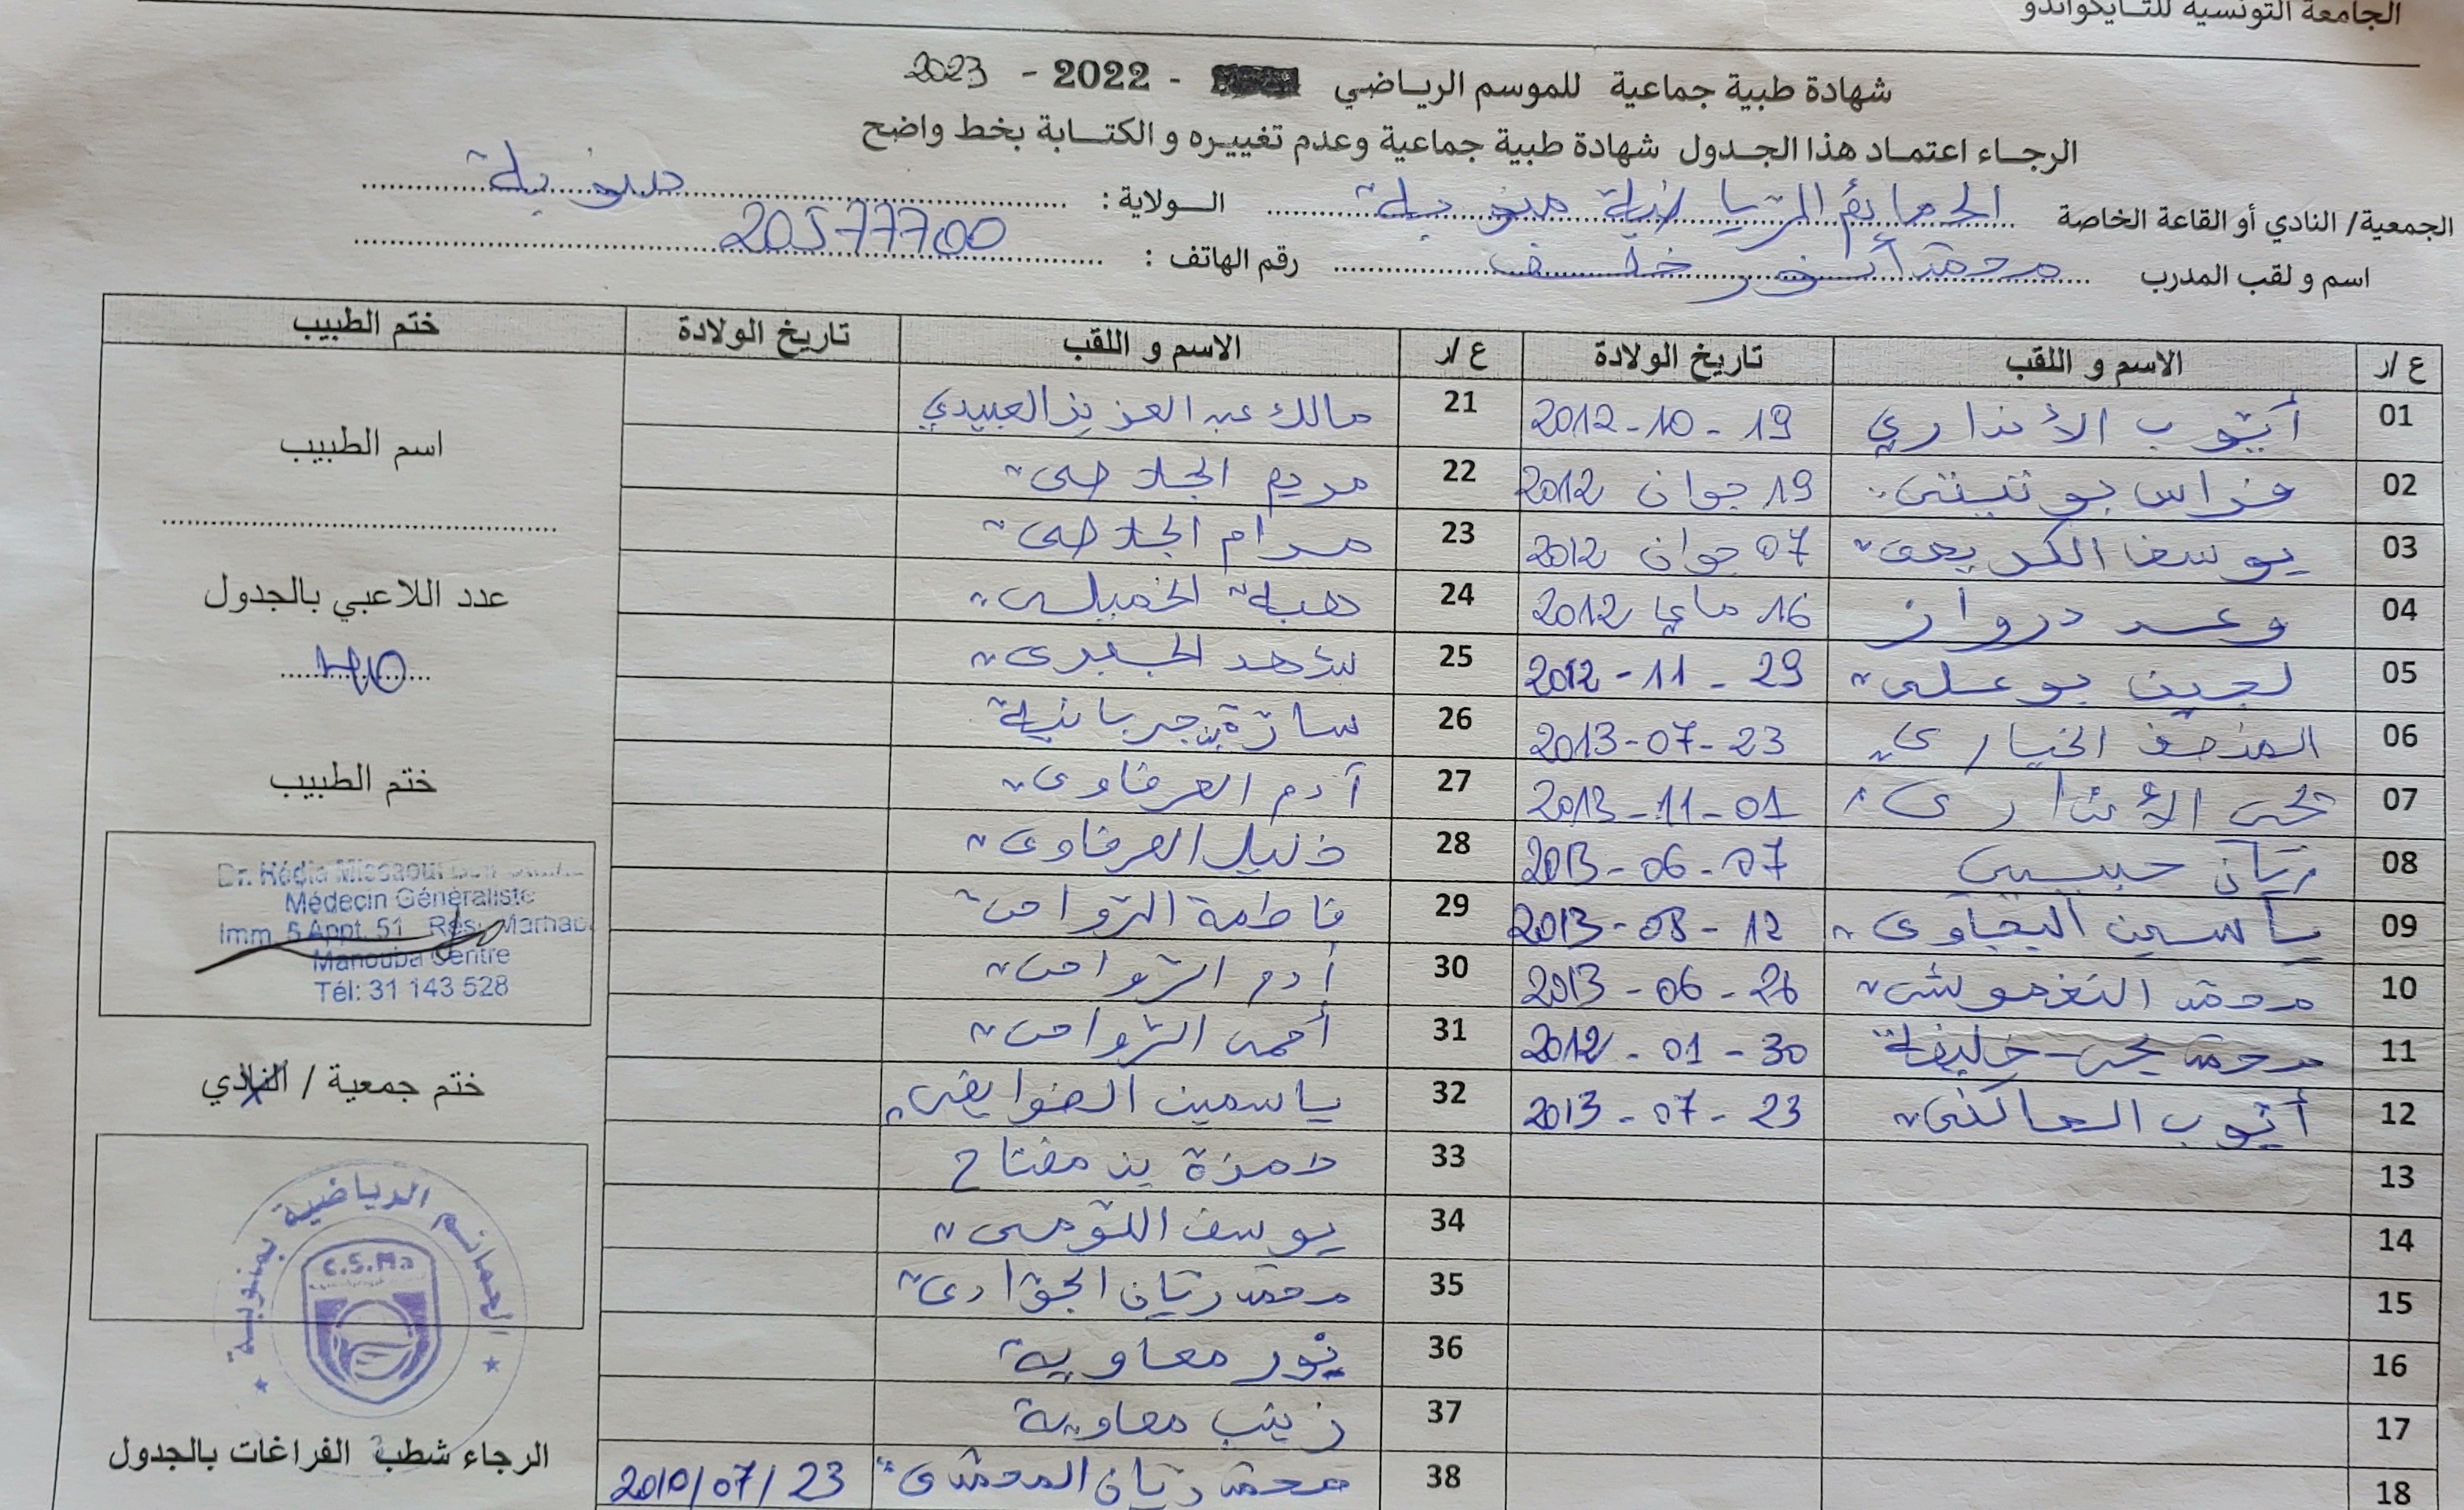 الجامعة التونسية للتايكواندو
شهادة طبية جماعية للموسم الرياضي - 2022 - 2023
الرجاء اعتماد هذا الجدول شهادة طبية جماعية وعدم تغييره و الكتابة بخط واضح
الجمعية/ النادي أو القاعة الخاصة الحمائم الرياضية منوبة الولاية : منوبة
اسم و لقب المدرب محمد أنور خلف رقم الهاتف : 20577700
ع /ر الاسم و اللقب تاريخ الولادة ع /ر الاسم و اللقب تاريخ الولادة ختم الطبيب
01 أيوب الأنذاري 19 - 10 - 2012 21 مالك عبد العزيز العبيدي
02 فراس بو تيتي 19 جوان 2012 22 مريم الجلاصي
اسم الطبيب
03 يوسف الكريمي 07 جوان 2012 23 مرام الجلاصي
04 وعد درواز 16 ماي 2012 24 هبة الخميلي
عدد اللاعبي بالجدول
40
05 لجين بوعلي 29 - 11 - 2012 25
06 المنصف الخياري 23 - 07 - 2013 26 سارة بن جربانية
07 يحي الأنذاري 01 - 11 - 2013 27 آدم العرفاوي
ختم الطبيب
08 ريان حبيبي 07 - 06 - 2013 28 خليل العرفاوي
09 ياسين اليحياوي 12 - 08 - 2013 29 فاطمة الزواحي
10 محمد النغموشي 26 - 06 - 2013 30 آدم الزواحي
Médecin Généraliste
Imm. 5 Appt. 51 Rés. Marhaba
Manouba Centre
Tél: 31 143 528
11 محمد يحي خليفة 30 - 01 - 2012 31 أحمد الزواحي
12 أيوب العاكفي 23 - 07 - 2013 32 ياسمين الضوايفي
ختم جمعية / النادي
13 33 حمزة بن مفتاح
14 34 يوسف اللتومي
15 35 محمد ريان الجوادي
16 36 نور معاوية
17 37 زينب معاوية
18 38 محمد ريان المحمدي 23 / 07 / 2010
الحمائم الرياضية بمنوبة
C.S.Ma
الرجاء شطب الفراغات بالجدول